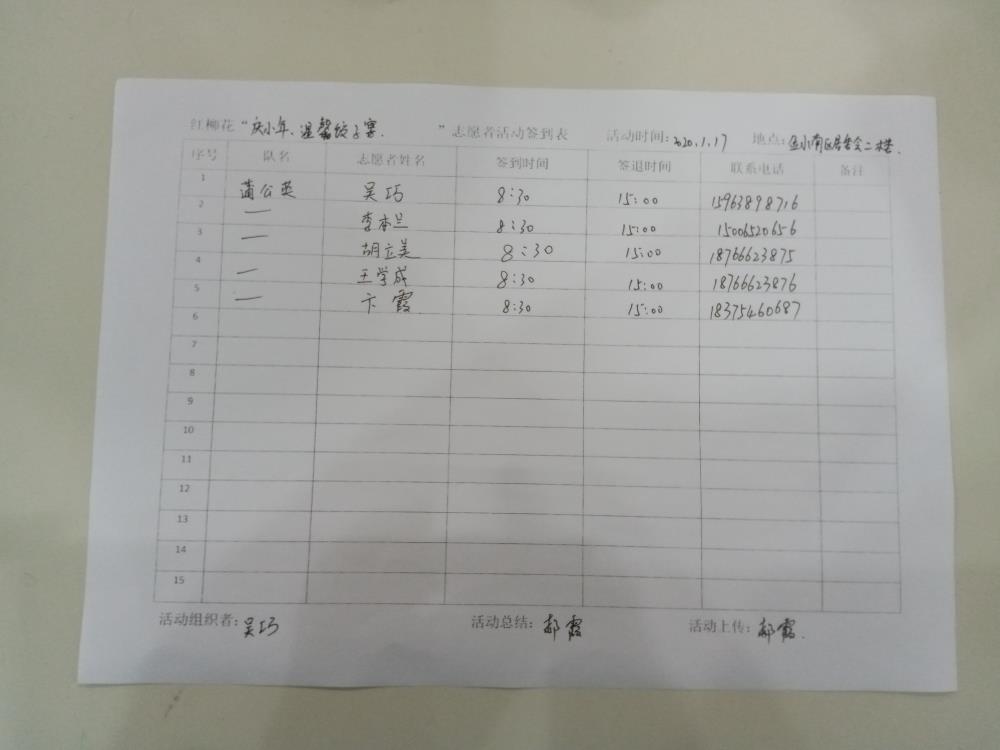 红柳花“庆小年、温馨饺子宴 ”志愿者活动签到表 活动时间：2020.1.17 地点：盘小南区居委会二楼.
序号 队名 志愿者姓名 签到时间 签退时间 联系电话 备注
1 蒲公英 吴巧 8:30 15:00 15963898716
2 — 李本兰 8:30 15:00 15006520656
3 — 胡立美 8:30 15:00 18766623875
4 — 王学成 8:30 15:00 18766623876
5 — 卞霞 8:30 15:00 18375460687
6
7
8
9
10
11
12
13
14
15
活动组织者：吴巧 活动总结：郝霞 活动上传：郝霞.